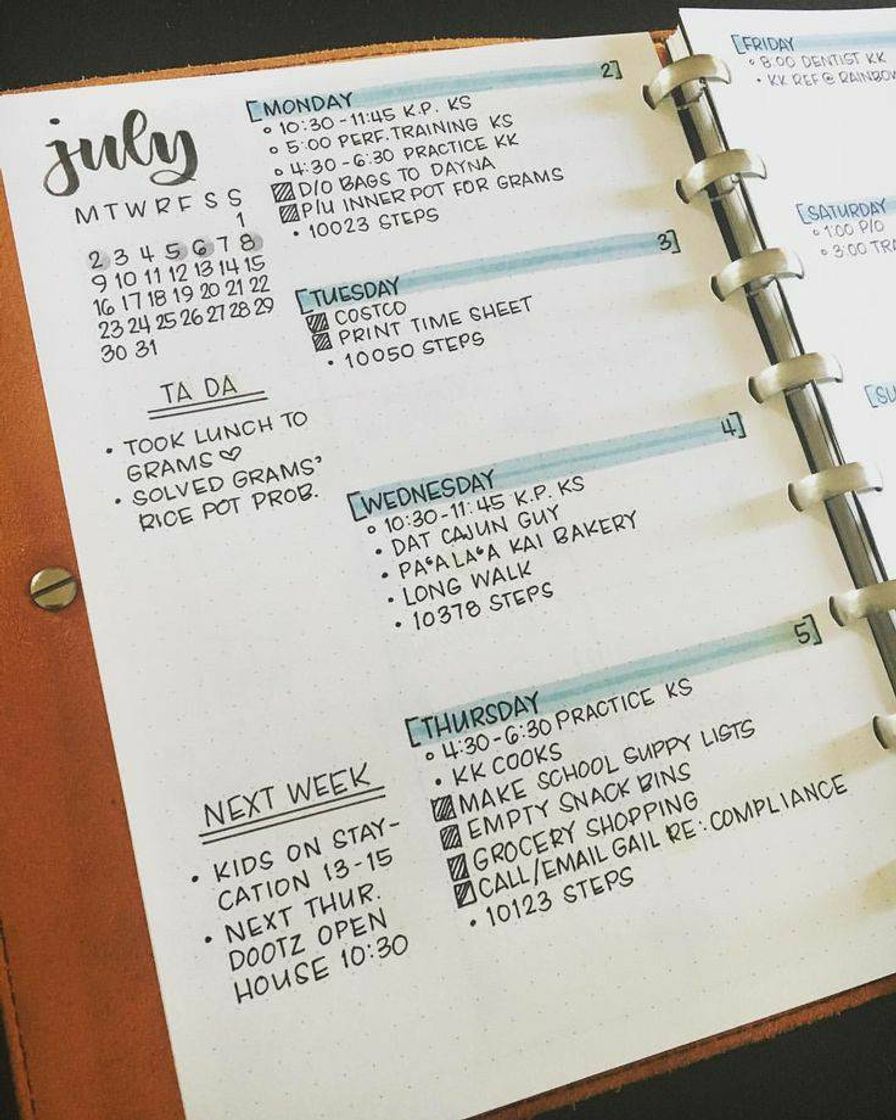 july
M T W R F S S
1
2 3 4 5 6 7 8
9 10 11 12 13 14 15
16 17 18 19 20 21 22
23 24 25 26 27 28 29
30 31
TA DA
• TOOK LUNCH TO
GRAMS ♡
• SOLVED GRAMS'
RICE POT PROB.
NEXT WEEK
• KIDS ON STAY-
CATION 13-15
• NEXT THUR.
DOOTZ OPEN
HOUSE 10:30
[MONDAY 2]
◦ 10:30-11:45 K.P. KS
◦ 5:00 PERF. TRAINING KS
◦ 4:30-6:30 PRACTICE KK
D/O BAGS TO DAYNA
P/U INNER POT FOR GRAMS
• 10023 STEPS
[TUESDAY 3]
COSTCO
PRINT TIME SHEET
• 10050 STEPS
[WEDNESDAY 4]
◦ 10:30-11:45 K.P. KS
• DAT CAJUN GUY
• PA'ALA'A KAI BAKERY
• LONG WALK
• 10378 STEPS
[THURSDAY 5]
◦ 4:30-6:30 PRACTICE KS
• KK COOKS
MAKE SCHOOL SUPPY LISTS
EMPTY SNACK BINS
GROCERY SHOPPING
CALL/EMAIL GAIL RE: COMPLIANCE
• 10123 STEPS
[FRIDAY
◦ 8:00 DENTIST KK
• KK REF @ RAINBOW
[SATURDAY
◦ 1:00 P/O
◦ 3:00 TRA
[SU